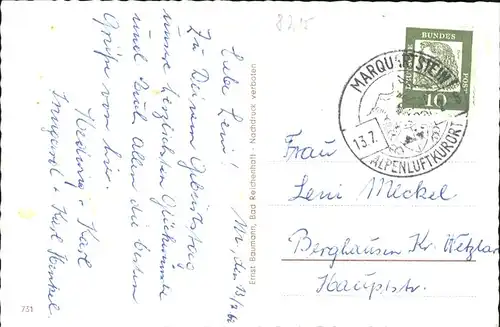 8215
Liebe Leni!
Mr, den 13/7 62
Zu Deinem Geburtstag
unsere herzlichsten Glückwünsche
und Euch Allen die besten
Grüße von hier.
Hedwig + Karl
Irmgard + Karl Henkel.
Ernst Baumann, Bad Reichenhall - Nachdruck verboten
731
DEUTSCHE BUNDESPOST
10
MARQUARTSTEIN
13.7.
ALPENLUFTKURORT
Frau
Leni Meckel
Berghausen Kr. Wetzlar
Hauptstr.